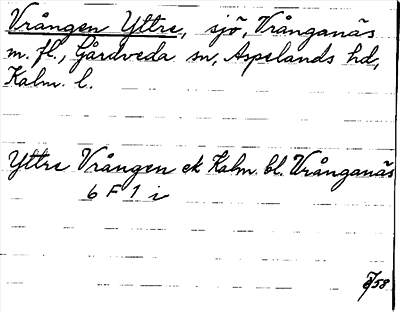 Vrången Yttre, sjö, Vrånganäs
m. fl., Gårdveda sn, Aspelands hd,
Kalm. l.
Yttre Vrången ek Kalm. bl. Vrånganäs
6 F 1 i
58